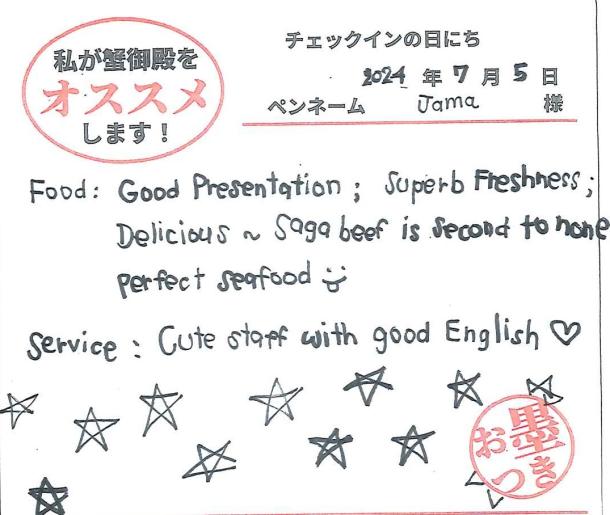 私が蟹御殿を
オススメ
します!
チェックインの日にち
2024 年 7 月 5 日
ペンネーム Jama 様
Food: Good Presentation; Superb Freshness;
Delicious ~ Saga beef is second to none
perfect seafood
Service: Cute staff with good English ♡
お墨
つき